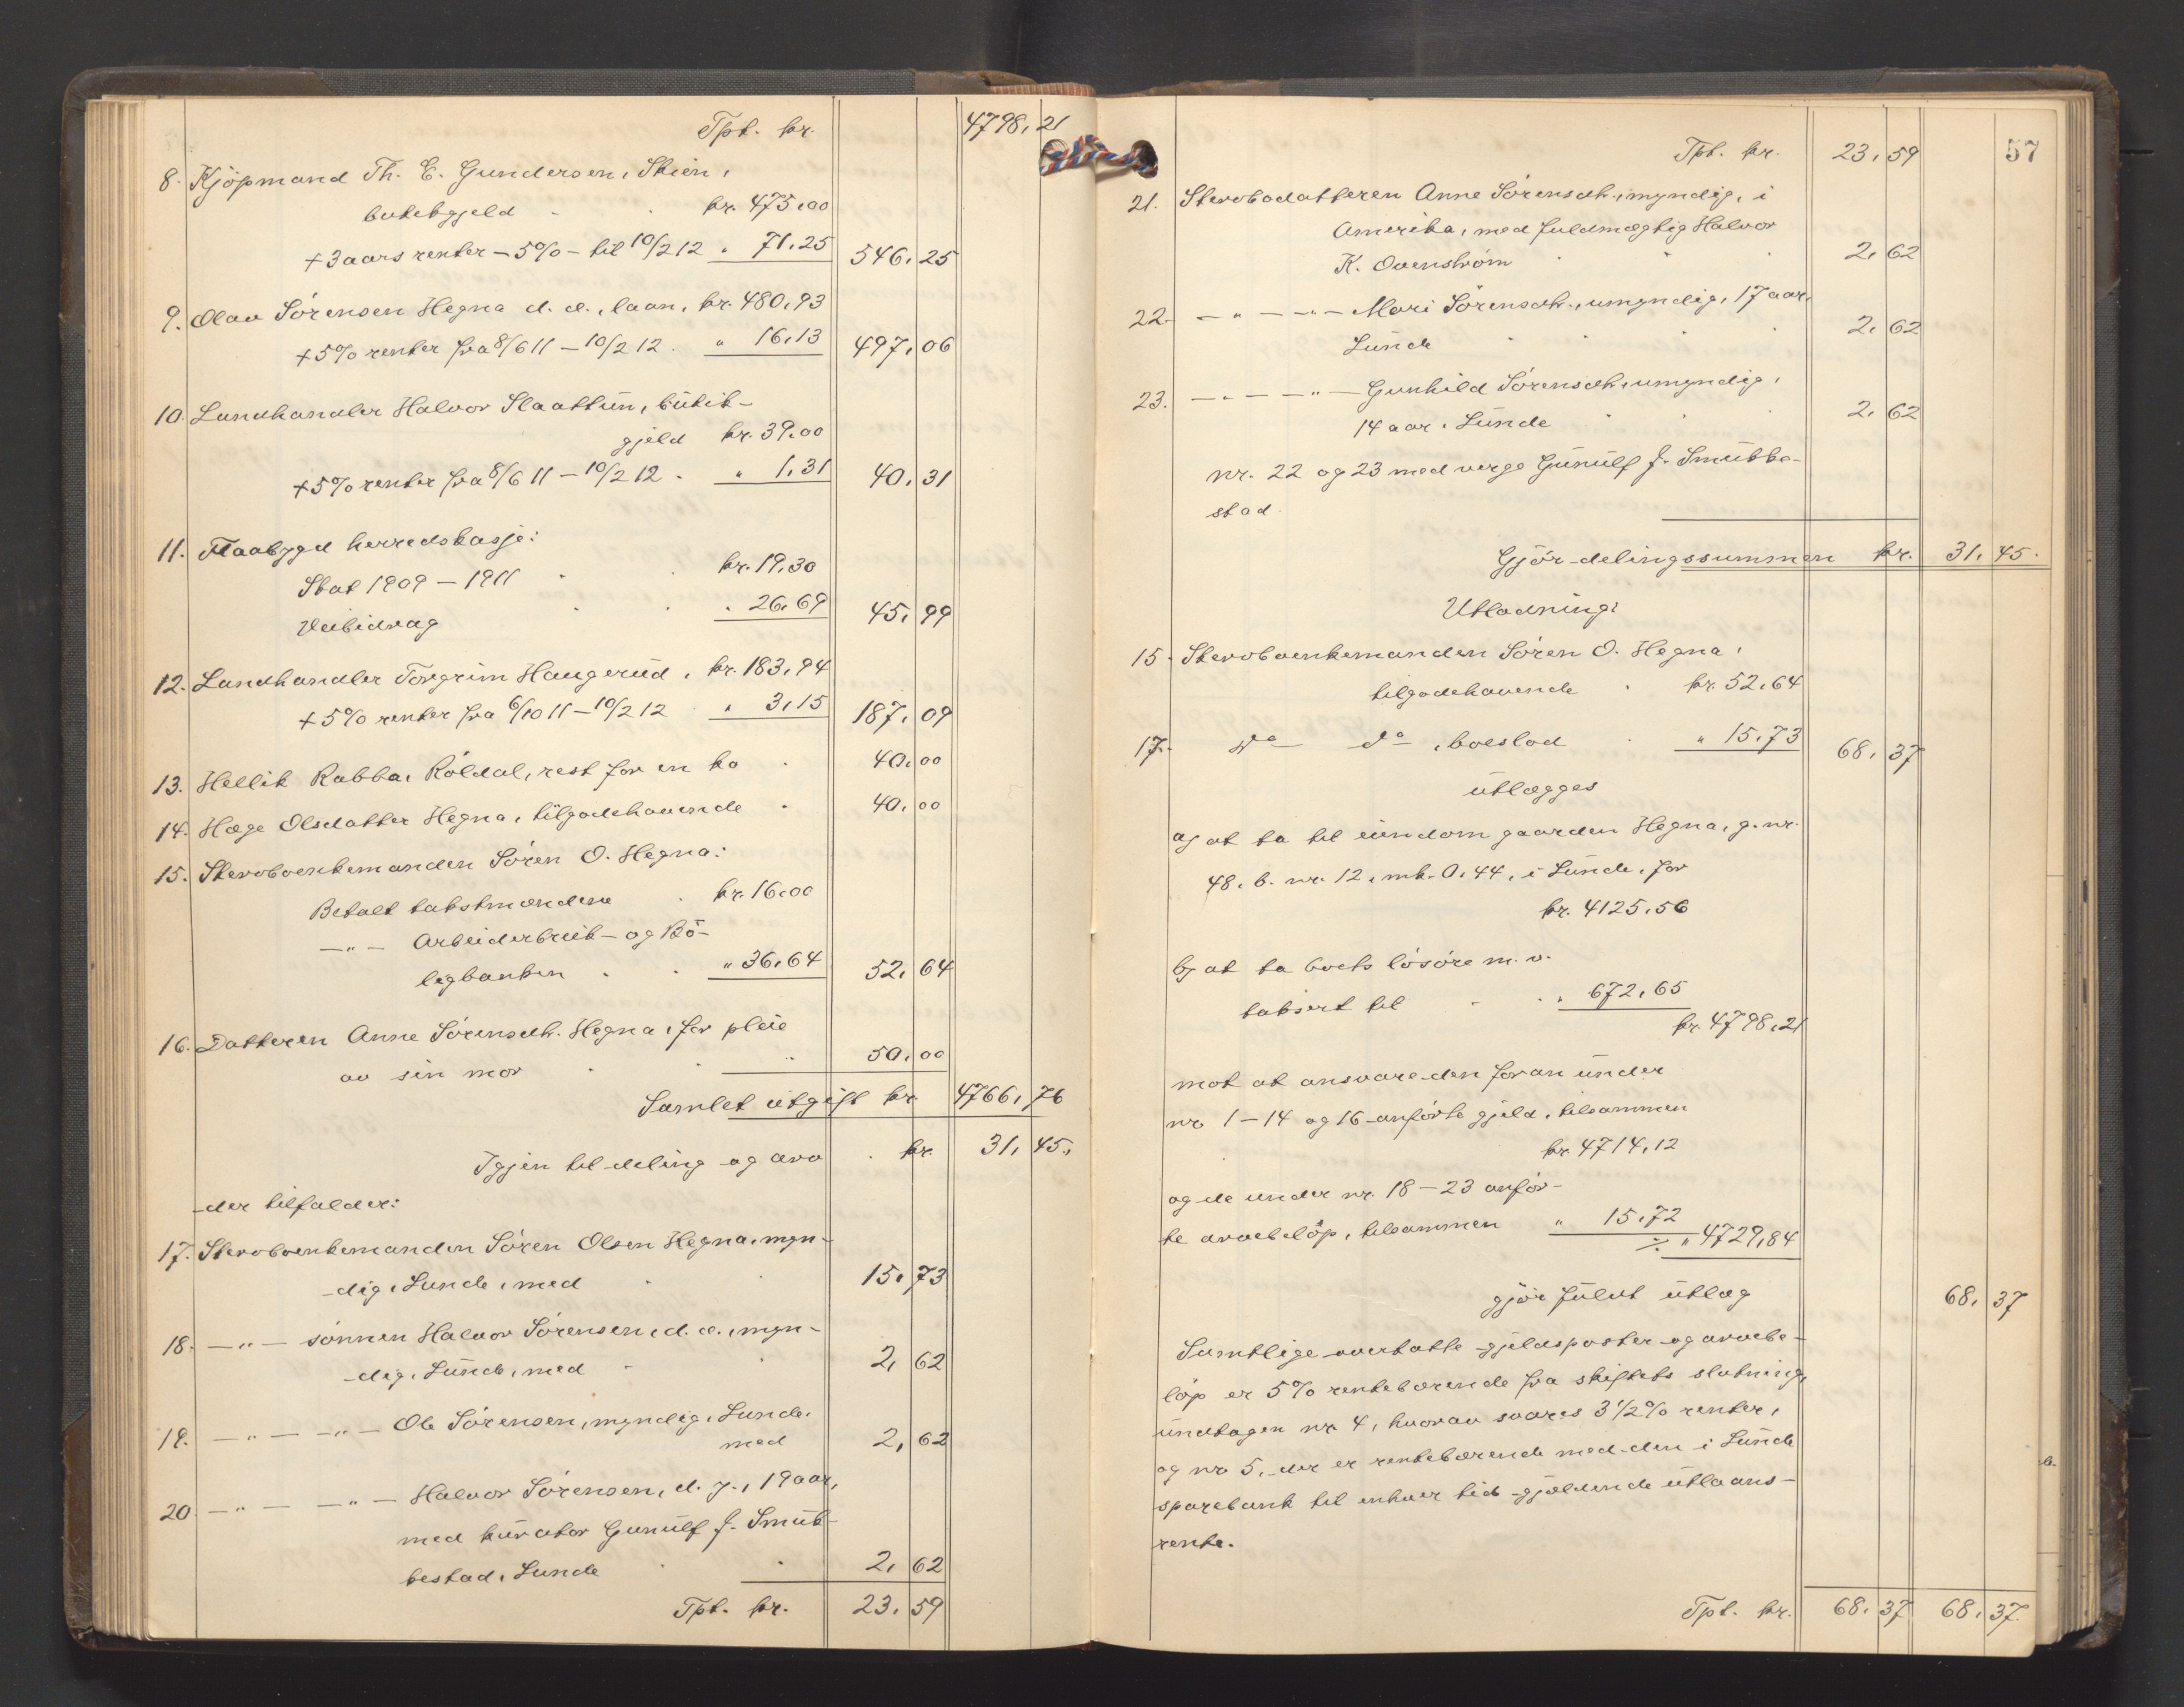 Tpt. kr. 4798,21
8. Kjøpmand Th. E. Gundersen, Skien,
butikgjeld kr. 475,00
+ 3 aars renter – 5% – til 10/2 12 " 71,25 546,25
9. Olav Sörensen Hegna d. æ., laan, kr. 480,93
+ 5% renter fra 8/6 11 – 10/2 12 " 16,13 497,06
10. Landhandler Halvor Slaattun, butik-
gjeld kr. 39,00
+ 5% renter fra 8/6 11 – 10/2 12 " 1,31 40,31
11. Flaabygd herredskasse:
Skat 1909 – 1911 kr. 19,30
Veibidrag " 26,69 45,99
12. Landhandler Torgrim Haugerud, kr. 183,94
+ 5% renter fra 6/10 11 – 10/2 12 " 3,15 187,09
13. Hellik Rabba, Röldal, rest for en ko 40,00
14. Hæge Olsdatter Hegna, tilgodehavende 40,00
15. Stervboenkemanden Sören O. Hegna:
Betalt takstmændene kr. 16,00
–"– Arbeiderbruk- og Bo-
ligbanken " 36,64 52,64
16. Datteren Anne Sörensdtr. Hegna, for pleie
av sin mor 50,00
Samlet utgift kr. 4766,76
Igjen til deling og arv kr. 31,45,
der tilfalder:
17. Stervboenkemanden Sören Olsen Hegna, myn-
dig, Lunde, med 15,73
18. –"– sönnen Halvor Sörensen, d. æ., myn-
dig, Lunde, med 2,62
19. –"– –"– Ole Sörensen, myndig, Lunde,
med 2,62
20. –"– –"– Halvor Sörensen, d. y., 19 aar,
med kurator Gunulf J. Smuk-
kestad, Lunde 2,62
Tpt. kr. 23,59
57
Tpt. kr. 23,59
21. Stervbodatteren Anne Sörensdtr., myndig, i
Amerika, med fuldmægtig Halvor
K. Ovenström 2,62
22. –"– –"– Mari Sörensdtr., umyndig, 17 aar,
Lunde 2,62
23. –"– –"– Gunhild Sörensdtr., umyndig,
14 aar, Lunde 2,62
nr. 22 og 23 med verge Gunulf J. Smukke-
stad.
Gjör delingssummen kr. 31,45.
Utlodning:
15. Stervboenkemanden Sören O. Hegna,
tilgodehavende kr. 52,64
17. do do, boeslod " 15,73 68,37
utlægges
a) at ta til eiendom gaarden Hegna, g. nr.
48, b. nr. 12, mk. 0,44, i Lunde, for
kr. 4125,56
b) at ta boets lösöre m. v.
taksert til " 672,65
kr. 4798,21
mot at ansvare den foran under
nr. 1 – 14 og 16 anförte gjeld, tilsammen
kr. 4714,12
og de under nr. 18 – 23 anför-
te arvebelöp, tilsammen " 15,72
÷ " 4729,84
gjör fuldt utlæg 68,37
Samtlige overtatte gjeldsposter og arvebe-
löp er 5% rentebærende fra skiftets slutning,
undtagen nr. 4, hvorav svares 3 1/2% renter,
og nr 5, der er rentebærende med den i Lunde
sparebank til enhver tid gjældende utlaans-
rente.
Tpt. kr. 68,37 68,37.